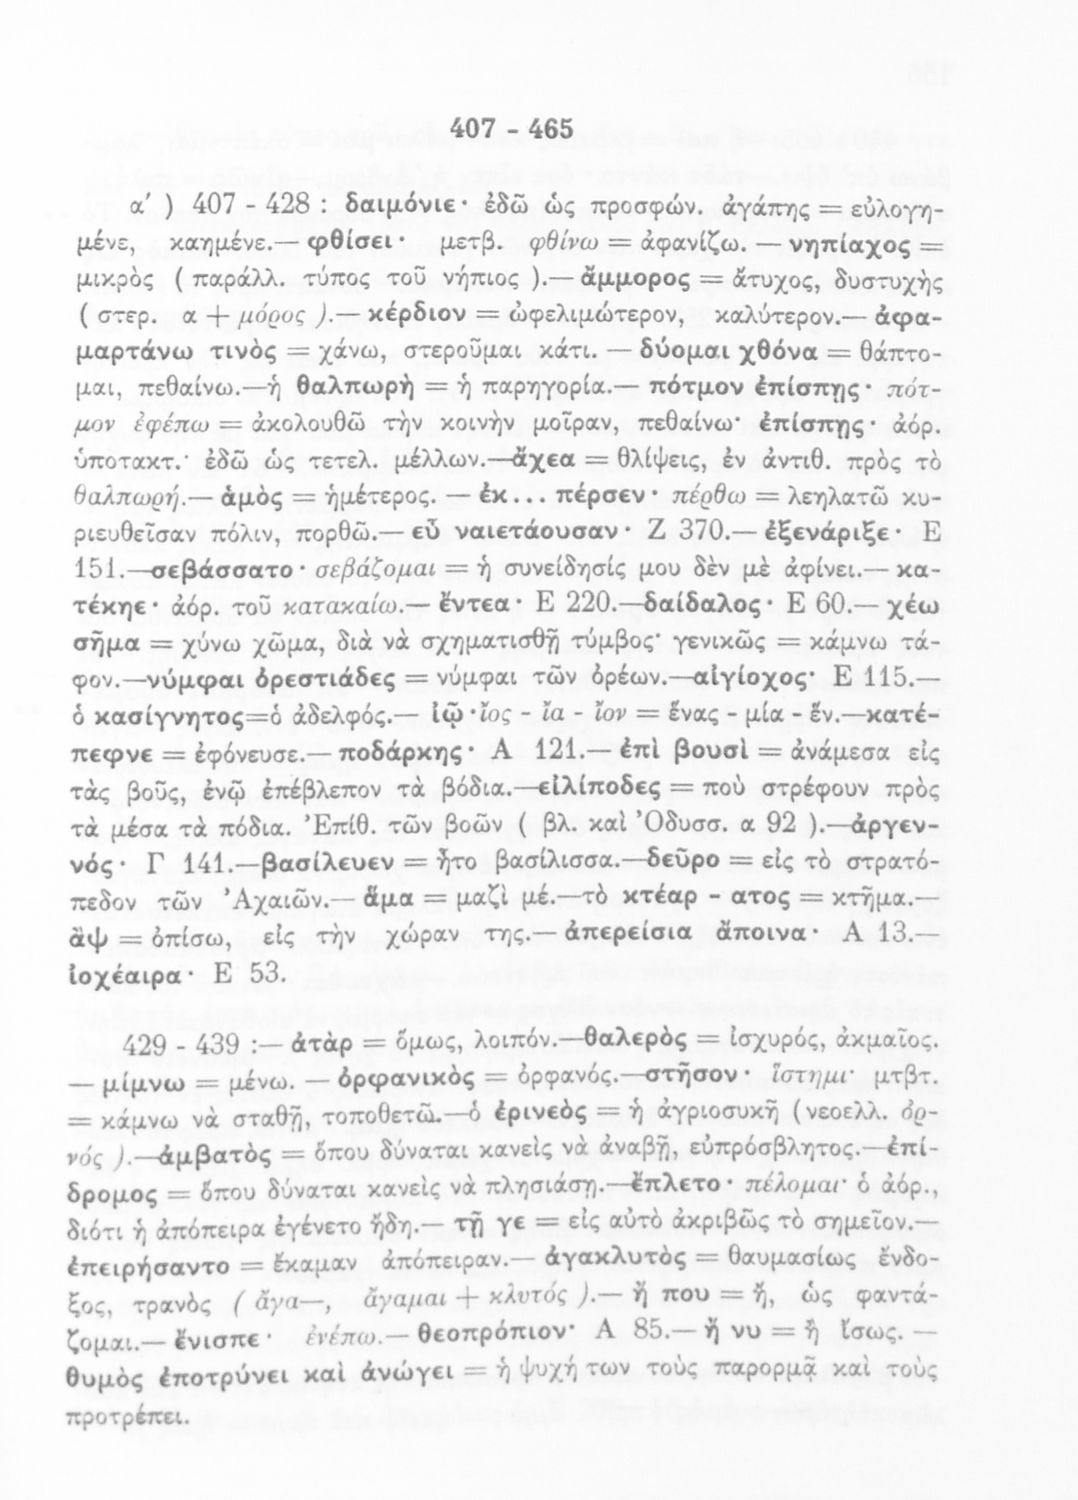 407 - 465
α′ ) 407 - 428 : δαιμόνιε· ἐδῶ ὡς προσφών. ἀγάπης = εὐλογη-
μένε, καημένε.— φθίσει· μετβ. φθίνω = ἀφανίζω. — νηπίαχος =
μικρὸς ( παράλλ. τύπος τοῦ νήπιος ).— ἄμμορος = ἄτυχος, δυστυχὴς
( στερ. α + μόρος ).— κέρδιον = ὠφελιμώτερον, καλύτερον.— ἀφα-
μαρτάνω τινὸς = χάνω, στεροῦμαι κάτι. — δύομαι χθόνα = θάπτο-
μαι, πεθαίνω.—ἡ θαλπωρὴ = ἡ παρηγορία.— πότμον ἐπίσπῃς· πότ-
μον ἐφέπω = ἀκολουθῶ τὴν κοινὴν μοῖραν, πεθαίνω· ἐπίσπῃς· ἀόρ.
ὑποτακτ.· ἐδῶ ὡς τετελ. μέλλων.—ἄχεα = θλίψεις, ἐν ἀντιθ. πρὸς τὸ
θαλπωρή.— ἁμὸς = ἡμέτερος. — ἐκ... πέρσεν· πέρθω = λεηλατῶ κυ-
ριευθεῖσαν πόλιν, πορθῶ.— εὖ ναιετάουσαν· Ζ 370.— ἐξενάριξε· Ε
151.—σεβάσσατο· σεβάζομαι = ἡ συνείδησίς μου δὲν μὲ ἀφίνει.— κα-
τέκηε· ἀόρ. τοῦ κατακαίω.— ἔντεα· Ε 220.—δαίδαλος· Ε 60.— χέω
σῆμα = χύνω χῶμα, διὰ νὰ σχηματισθῇ τύμβος· γενικῶς = κάμνω τά-
φον.—νύμφαι ὀρεστιάδες = νύμφαι τῶν ὀρέων.—αἰγίοχος· Ε 115.—
ὁ κασίγνητος=ὁ ἀδελφός.— ἰῷ·ἴος - ἴα - ἴον = ἕνας - μία - ἕν.—κατέ-
πεφνε = ἐφόνευσε.— ποδάρκης· Α 121.— ἐπὶ βουσὶ = ἀνάμεσα εἰς
τὰς βοῦς, ἐνῷ ἐπέβλεπον τὰ βόδια.—εἰλίποδες = ποὺ στρέφουν πρὸς
τὰ μέσα τὰ πόδια. Ἐπίθ. τῶν βοῶν ( βλ. καὶ Ὀδυσσ. α 92 ).—ἀργεν-
νός· Γ 141.—βασίλευεν = ἦτο βασίλισσα.—δεῦρο = εἰς τὸ στρατό-
πεδον τῶν Ἀχαιῶν.— ἅμα = μαζὶ μέ.—τὸ κτέαρ - ατος = κτῆμα.—
ἂψ = ὀπίσω, εἰς τὴν χώραν της.— ἀπερείσια ἄποινα· Α 13.—
ἰοχέαιρα· Ε 53.
429 - 439 :— ἀτὰρ = ὅμως, λοιπόν.—θαλερὸς = ἰσχυρός, ἀκμαῖος.
— μίμνω = μένω. — ὀρφανικὸς = ὀρφανός.—στῆσον· ἵστημι· μτβτ.
= κάμνω νὰ σταθῇ, τοποθετῶ.—ὁ ἐρινεὸς = ἡ ἀγριοσυκῆ (νεοελλ. ὀρ-
νός ).—ἀμβατὸς = ὅπου δύναται κανεὶς νὰ ἀναβῇ, εὐπρόσβλητος.—ἐπί-
δρομος = ὅπου δύναται κανεὶς νὰ πλησιάσῃ.—ἔπλετο· πέλομαι· ὁ ἀόρ.,
διότι ἡ ἀπόπειρα ἐγένετο ἤδη.— τῇ γε = εἰς αὐτὸ ἀκριβῶς τὸ σημεῖον.—
ἐπειρήσαντο = ἔκαμαν ἀπόπειραν.— ἀγακλυτὸς = θαυμασίως ἔνδο-
ξος, τρανὸς ( ἄγα—, ἄγαμαι + κλυτός ).— ἤ που = ἤ, ὡς φαντά-
ζομαι.— ἔνισπε· ἐνέπω.— θεοπρόπιον· Α 85.— ἤ νυ = ἢ ἴσως. —
θυμὸς ἐποτρύνει καὶ ἀνώγει = ἡ ψυχή των τοὺς παρορμᾷ καὶ τοὺς
προτρέπει.